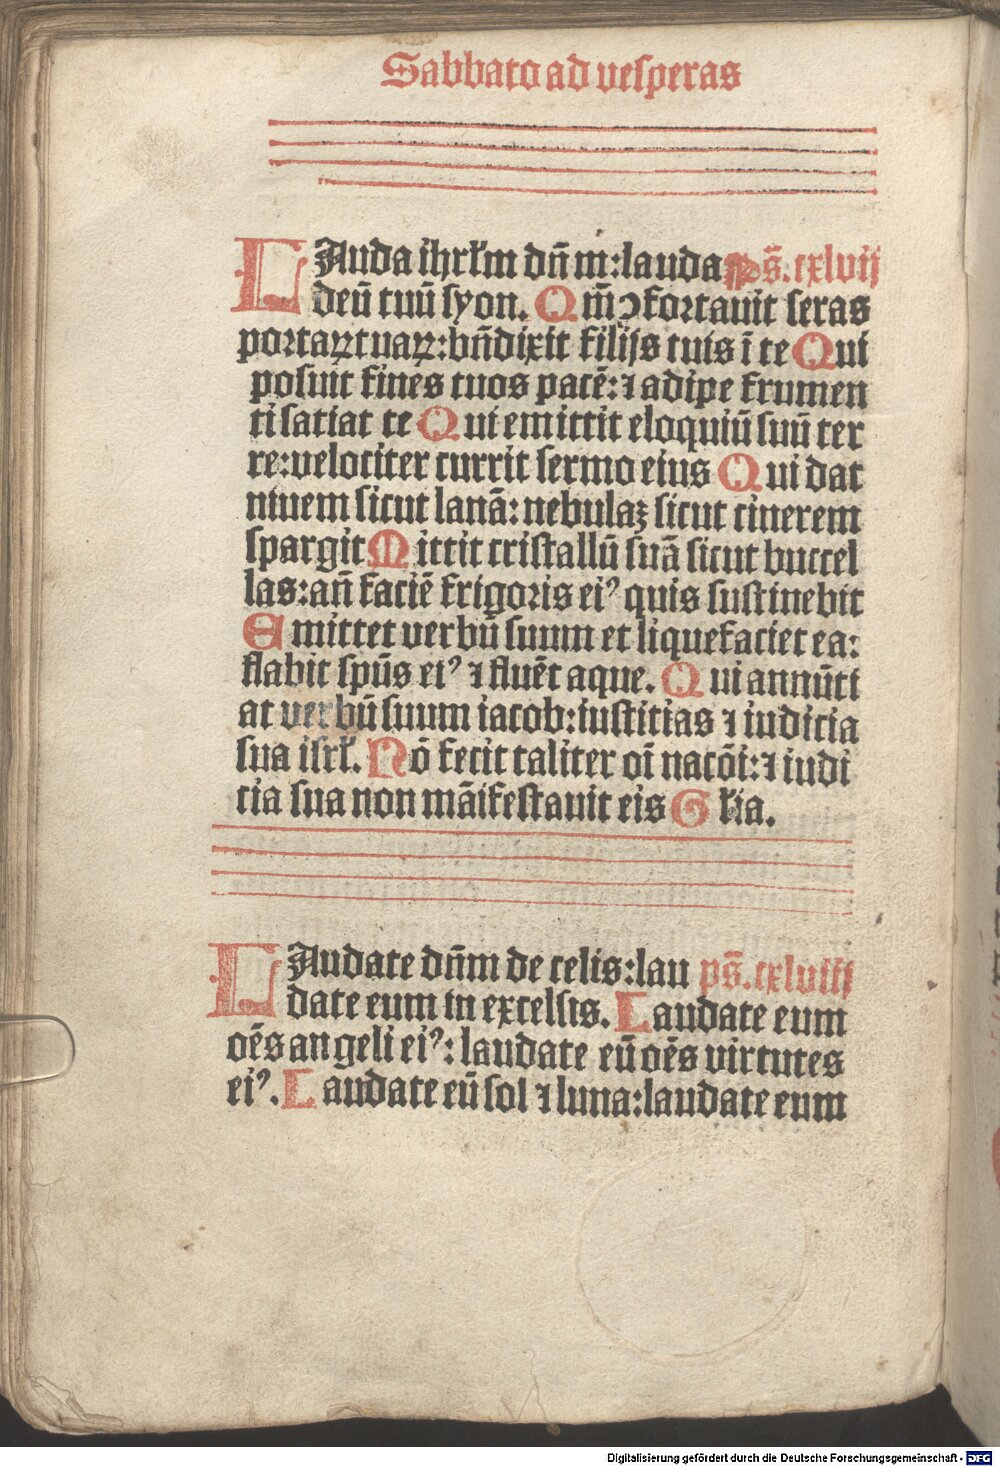 Sabbato ad vesperas
LAuda ihrł'm dn̄m:lauda ps̄.cxlvij
deū tuū syon. Qm̄ ↄfortauit seras
portaꝝ tuaꝝ:bn̄dixit filijs tuis ī te Qui
posuit fines tuos pacē:⁊ adipe frumen
ti satiat te Qui emittit eloquiū suū ter
re:velociter currit sermo eius Qui dat
niuem sicut lanā: nebulaꝫ sicut cinerem
spargit Mittit cristallū suā sicut buccel
las:an̄ faciē frigoris eiꝰ quis sustinebit
Emittet verbū suum et liquefaciet ea:
flabit sp̄us eiꝰ ⁊ fluēt aque. Qui annūti
at verbū suum iacob:iustitias ⁊ iudicia
sua isrł. Nō fecit taliter oī nacōi:⁊ iudi
cia sua non māifestauit eis Głia.
LAudate dn̄m de celis:lau ps̄.cxlviij
date eum in excelsis. Laudate eum
oēs angeli eiꝰ: laudate eū oēs virtutes
eiꝰ. Laudate eū sol ⁊ luna:laudate eum
Digitalisierung gefördert durch die Deutsche Forschungsgemeinschaft - DFG